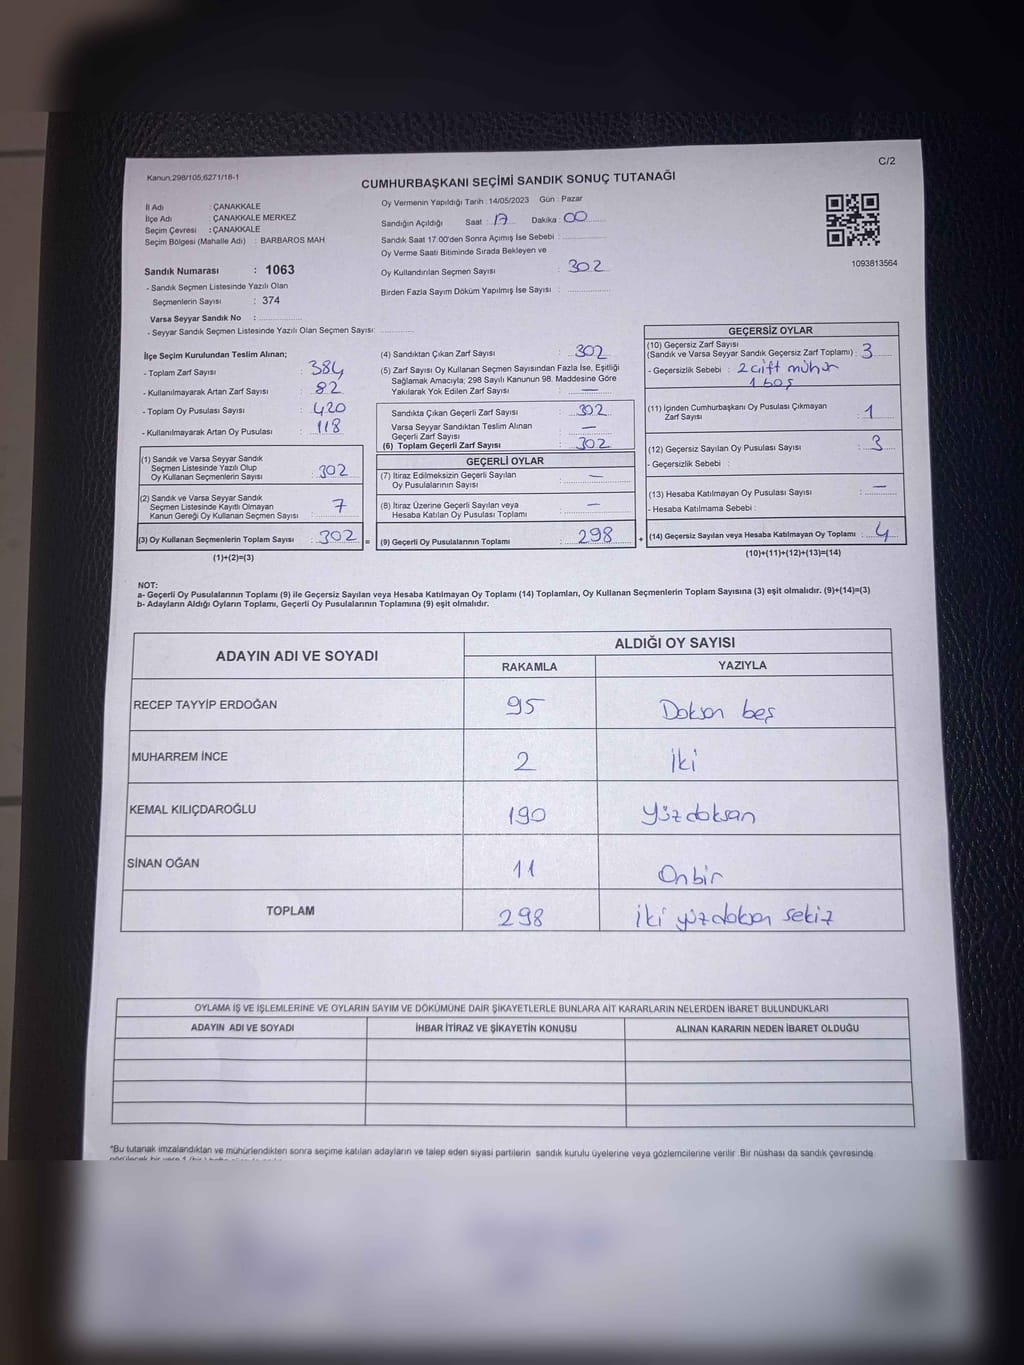 Kanun;298/105,6271/18-1
C/2
CUMHURBAŞKANI SEÇİMİ SANDIK SONUÇ TUTANAĞI
İl Adı : ÇANAKKALE
İlçe Adı : ÇANAKKALE MERKEZ
Seçim Çevresi : ÇANAKKALE
Seçim Bölgesi (Mahalle Adı) : BARBAROS MAH
Sandık Numarası : 1063
- Sandık Seçmen Listesinde Yazılı Olan
Seçmenlerin Sayısı : 374
Varsa Seyyar Sandık No :
- Seyyar Sandık Seçmen Listesinde Yazılı Olan Seçmen Sayısı:
Oy Vermenin Yapıldığı Tarih : 14/05/2023 Gün : Pazar
Sandığın Açıldığı Saat : 17 Dakika : 00
Sandık Saat 17.00'den Sonra Açımış İse Sebebi :
Oy Verme Saati Bitiminde Sırada Bekleyen ve
Oy Kullandırılan Seçmen Sayısı : 302
Birden Fazla Sayım Döküm Yapılmış İse Sayısı :
1093813564
İlçe Seçim Kurulundan Teslim Alınan;
- Toplam Zarf Sayısı : 384
- Kullanılmayarak Artan Zarf Sayısı : 82
- Toplam Oy Pusulası Sayısı : 420
- Kullanılmayarak Artan Oy Pusulası : 118
(1) Sandık ve Varsa Seyyar Sandık
Seçmen Listesinde Yazılı Olup
Oy Kullanan Seçmenlerin Sayısı : 302
(2) Sandık ve Varsa Seyyar Sandık
Seçmen Listesinde Kayıtlı Olmayan
Kanun Gereği Oy Kullanan Seçmen Sayısı : 7
(3) Oy Kullanan Seçmenlerin Toplam Sayısı : 302 =
(1)+(2)=(3)
(4) Sandıktan Çıkan Zarf Sayısı : 302
(5) Zarf Sayısı Oy Kullanan Seçmen Sayısından Fazla İse, Eşitliği
Sağlamak Amacıyla; 298 Sayılı Kanunun 98. Maddesine Göre
Yakılarak Yok Edilen Zarf Sayısı : —
Sandıkta Çıkan Geçerli Zarf Sayısı : 302
Varsa Seyyar Sandıktan Teslim Alınan
Geçerli Zarf Sayısı : —
(6) Toplam Geçerli Zarf Sayısı : 302
GEÇERLİ OYLAR
(7) İtiraz Edilmeksizin Geçerli Sayılan
Oy Pusulalarının Sayısı : —
(8) İtiraz Üzerine Geçerli Sayılan veya
Hesaba Katılan Oy Pusulası Toplamı : —
(9) Geçerli Oy Pusulalarının Toplamı : 298 +
GEÇERSİZ OYLAR
(10) Geçersiz Zarf Sayısı
(Sandık ve Varsa Seyyar Sandık Geçersiz Zarf Toplamı) : 3
- Geçersizlik Sebebi : 2 çift mühür
1 boş
(11) İçinden Cumhurbaşkanı Oy Pusulası Çıkmayan
Zarf Sayısı : 1
(12) Geçersiz Sayılan Oy Pusulası Sayısı : 3
- Geçersizlik Sebebi :
(13) Hesaba Katılmayan Oy Pusulası Sayısı : —
- Hesaba Katılmama Sebebi :
(14) Geçersiz Sayılan veya Hesaba Katılmayan Oy Toplamı : 4
(10)+(11)+(12)+(13)=(14)
NOT:
a- Geçerli Oy Pusulalarının Toplamı (9) ile Geçersiz Sayılan veya Hesaba Katılmayan Oy Toplamı (14) Toplamları, Oy Kullanan Seçmenlerin Toplam Sayısına (3) eşit olmalıdır. (9)+(14)=(3)
b- Adayların Aldığı Oyların Toplamı, Geçerli Oy Pusulalarının Toplamına (9) eşit olmalıdır.
ADAYIN ADI VE SOYADI ALDIĞI OY SAYISI
RAKAMLA YAZIYLA
RECEP TAYYİP ERDOĞAN 95 Doksan beş
MUHARREM İNCE 2 İki
KEMAL KILIÇDAROĞLU 190 Yüzdoksan
SİNAN OĞAN 11 Onbir
TOPLAM 298 İki yüzdoksan sekiz
OYLAMA İŞ VE İŞLEMLERİNE VE OYLARIN SAYIM VE DÖKÜMÜNE DAİR ŞİKAYETLERLE BUNLARA AİT KARARLARIN NELERDEN İBARET BULUNDUKLARI
ADAYIN ADI VE SOYADI İHBAR İTİRAZ VE ŞİKAYETİN KONUSU ALINAN KARARIN NEDEN İBARET OLDUĞU
*Bu tutanak imzalandıktan ve mühürlendikten sonra seçime katılan adayların ve talep eden siyasi partilerin sandık kurulu üyelerine veya gözlemcilerine verilir .Bir nüshası da sandık çevresinde